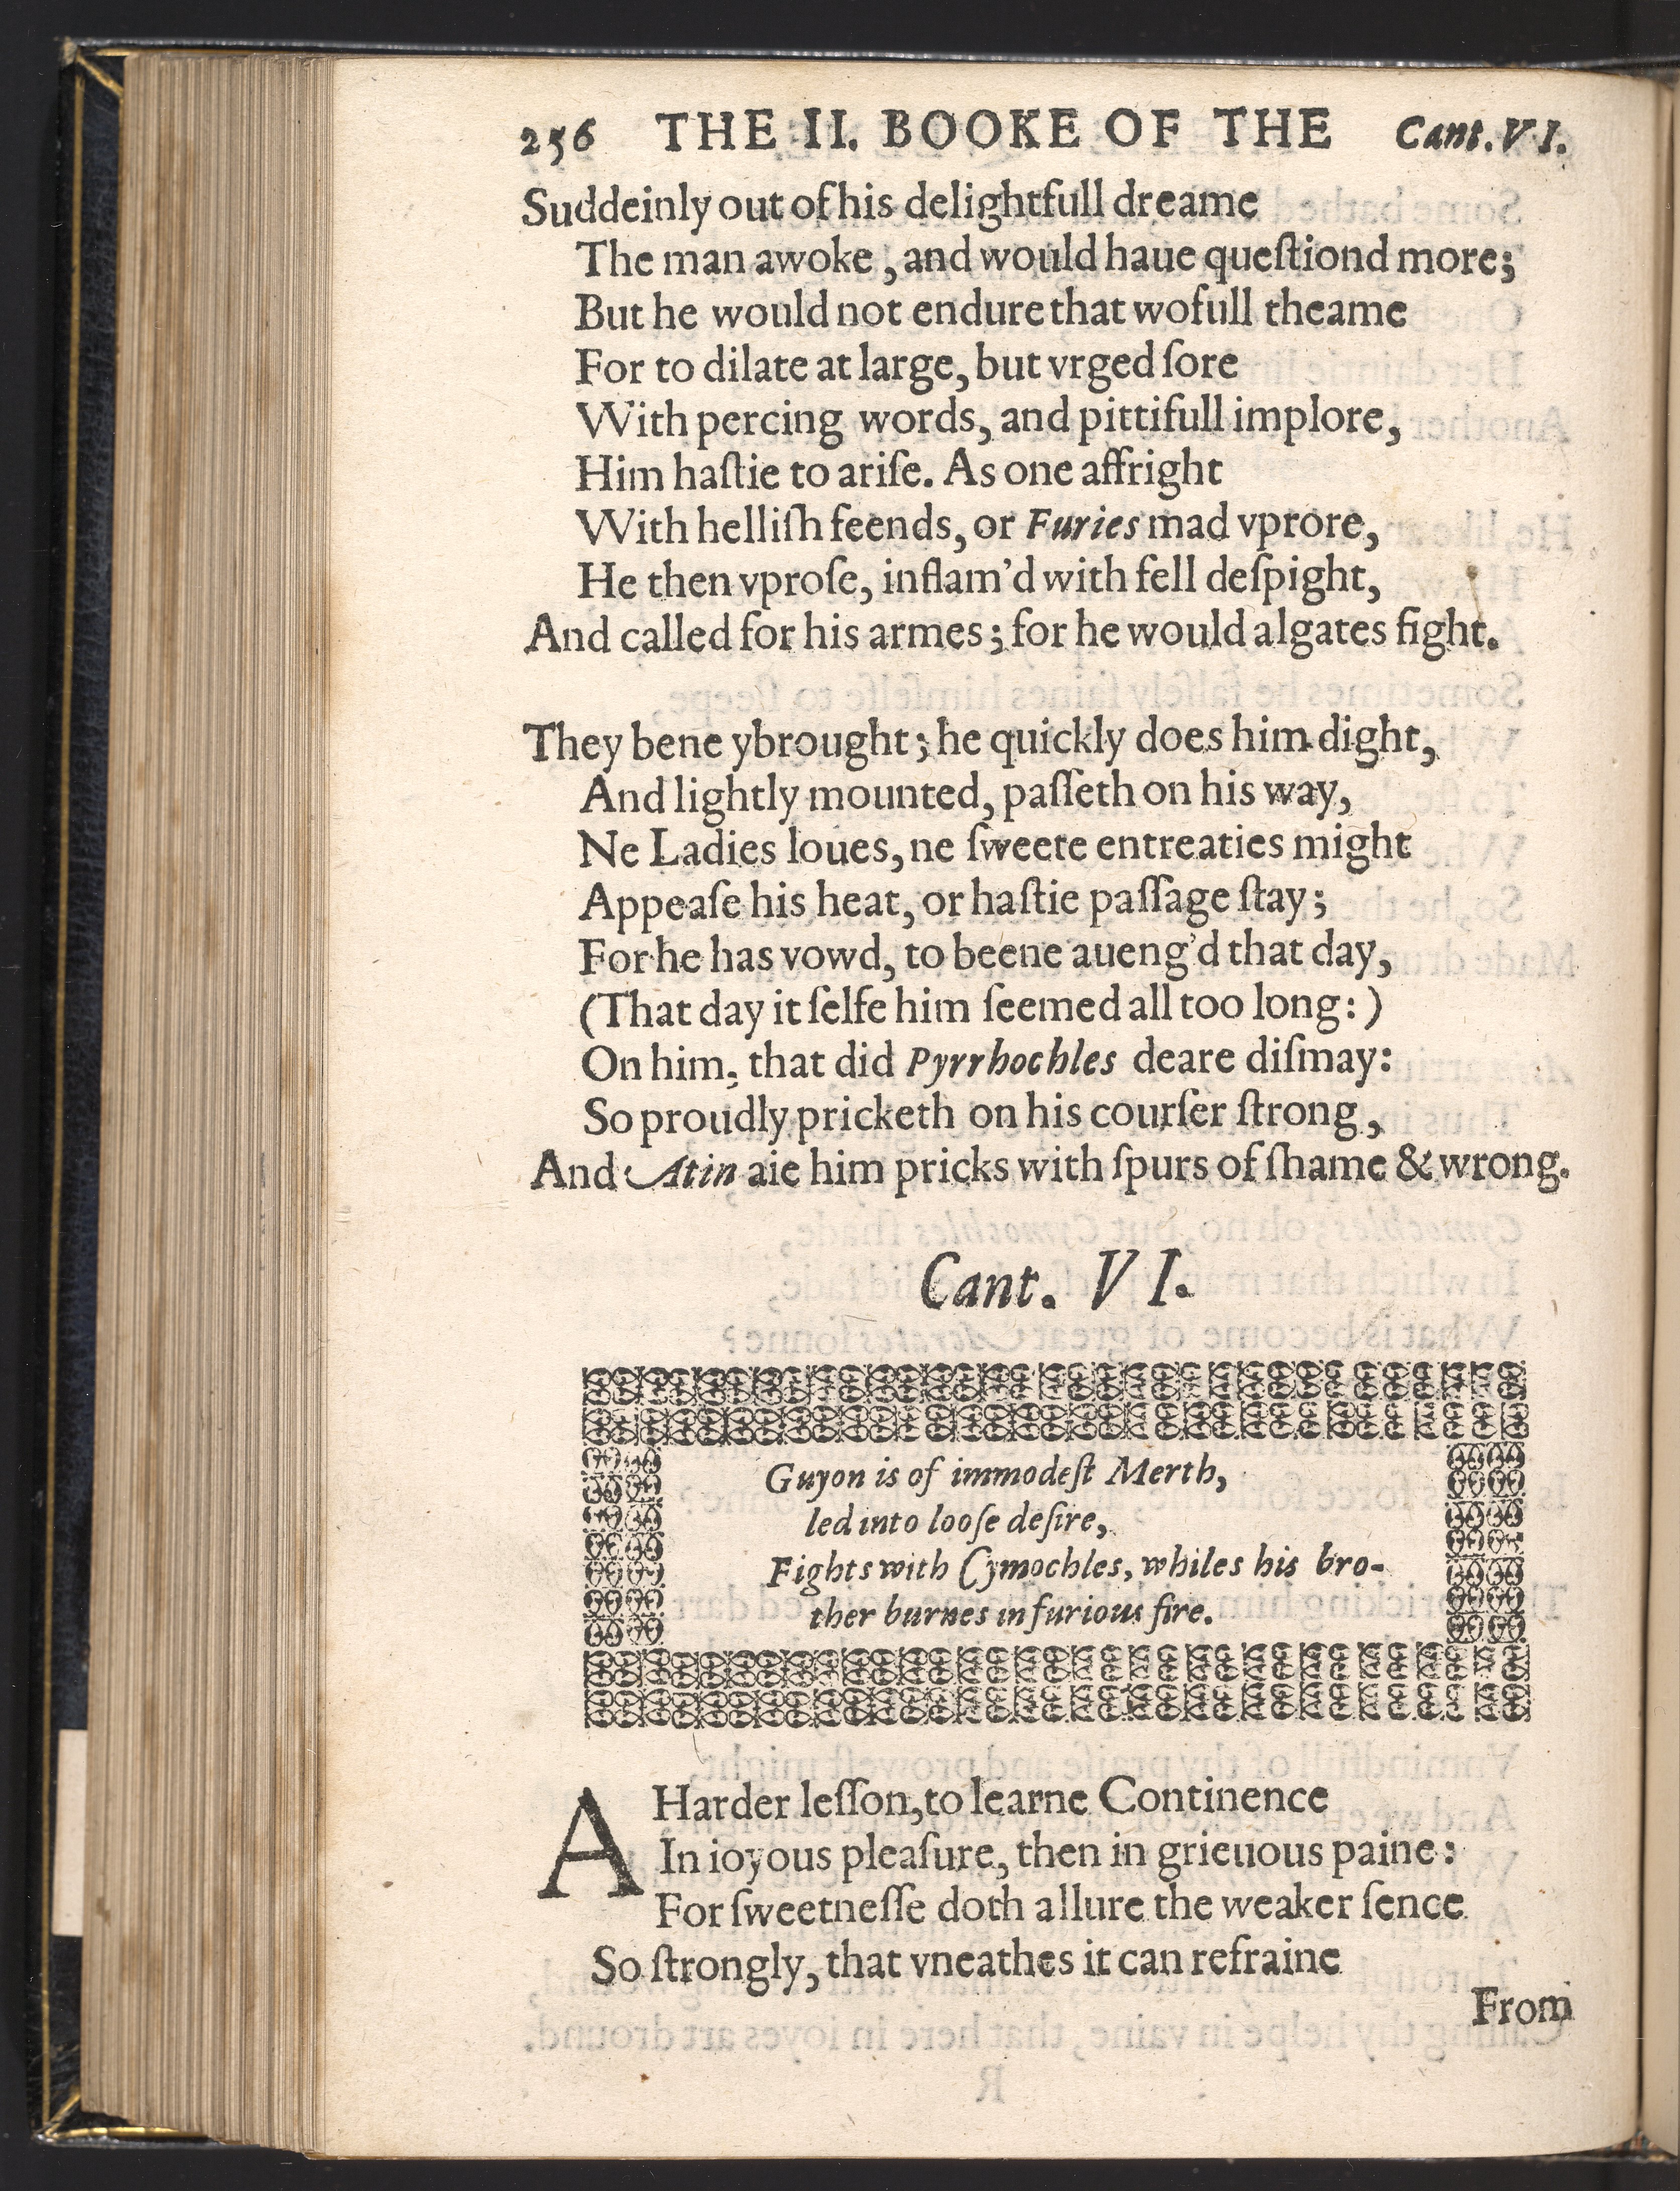 256 THE II. BOOKE OF THE Cant. VI.
Suddeinly out of his delightfull dreame
The man awoke, and would haue queſtiond more;
But he would not endure that wofull theame
For to dilate at large, but vrged ſore
With percing words, and pittifull implore,
Him haſtie to ariſe. As one affright
With helliſh feends, or Furies mad vprore,
He then vproſe, inflam'd with fell deſpight,
And called for his armes; for he would algates fight.
They bene ybrought; he quickly does him dight,
And lightly mounted, paſſeth on his way,
Ne Ladies loues, ne ſweete entreaties might
Appeaſe his heat, or haſtie paſſage ſtay;
For he has vowd, to beene aueng'd that day,
(That day it ſelfe him ſeemed all too long:)
On him, that did Pyrrhochles deare diſmay:
So proudly pricketh on his courſer ſtrong,
And Atin aie him pricks with ſpurs of ſhame & wrong.
Cant. VI.
Guyon is of immodeſt Merth,
led into looſe deſire,
Fights with Cymochles, whiles his bro-
ther burnes in furious fire.
A Harder leſſon, to learne Continence
In ioyous pleaſure, then in grieuous paine:
For ſweetneſſe doth allure the weaker ſence
So ſtrongly, that vneathes it can refraine
From